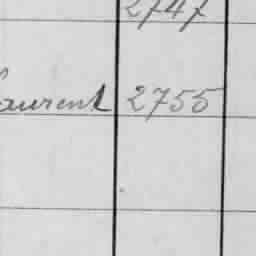 2747
Laurent 2755